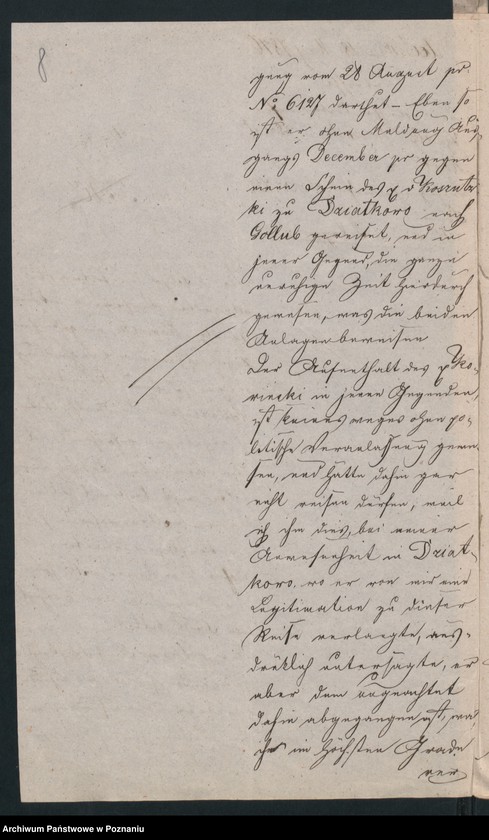 8
gung vom 28 August pr.
No 6127 darthut – Eben so
ist er ohne Meldung Aus
gangs December pr gegen
einen Schein des p v Koszutz
ki zu Dziatkowo nach
Gollub gereiset, und in
jener Gegend, die ganze
unruhige Zeit hierdurch
gewesen, was die beiden
Anlagen beweisen
Der Aufenthalt des p Ko-
riecki in jenen Gegenden,
ist keines weges ohne po-
litische Veranlassung gewe
sen, und hätte dahin gar
nicht reisen dürfen, weil
ich ihm dies, bei meiner
Anwesenheit in Dziat-
kowo, wo er von mir eine
Legitimation zu dieser
Reise verlangte, aus-
drüklich untersagte, er
aber dem ungeachtet
dahin abgegangen ist, was
ihn im höchsten Grade
ver
Archiwum Państwowe w Poznaniu